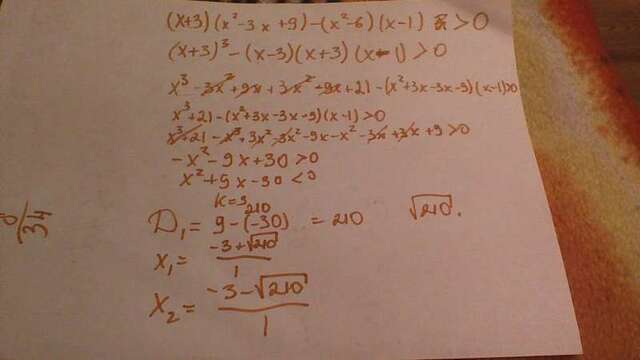 (x+3)(x²-3x+9)-(x²-6)(x-1)>0
(x+3)³-(x-3)(x+3)(x-1)>0
x³-3x²+9x+3x²-9x+21-(x²+3x-3x-9)(x-1)>0
x³+21-(x²+3x-3x-9)(x-1)>0
x³+21-x³+3x²-3x²-9x-x²-3x+3x+9>0
-x²-9x+30>0
x²+9x-30<0
k=3
210
D₁=9-(-30)=210 √210.
x₁=(-3+√210)/1
x₂=(-3-√210)/1
34